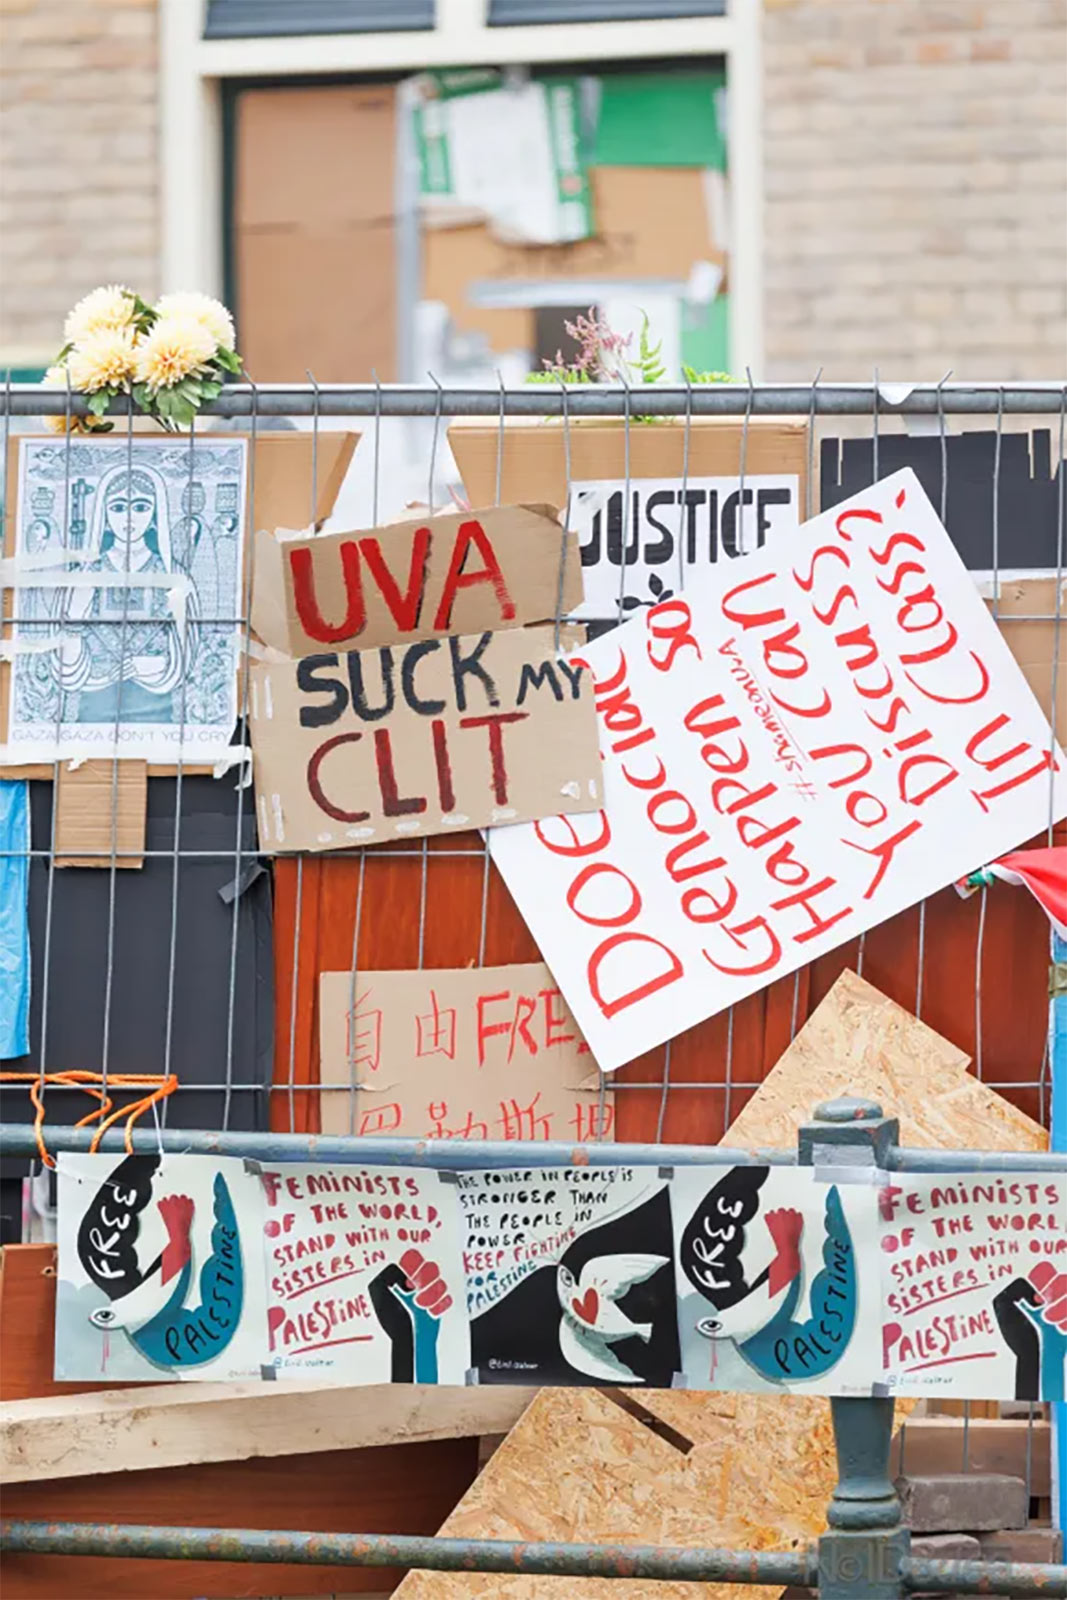 GAZA GAZA DON'T YOU CRY
UVA
SUCK MY
CLIT
JUSTICE
DOES
Genocide
Happen so
#shameonuva
You can
Discuss it
In Class?
自由 FREE
巴勒斯坦
FREE
PALESTINE
FEMINISTS
OF THE WORLD,
STAND WITH OUR
SISTERS IN
PALESTINE
THE POWER IN PEOPLE IS
STRONGER THAN
THE PEOPLE IN
POWER
KEEP FIGHTING
FOR
PALESTINE
FREE
PALESTINE
FEMINISTS
OF THE WORLD
STAND WITH OUR
SISTERS IN
PALESTINE